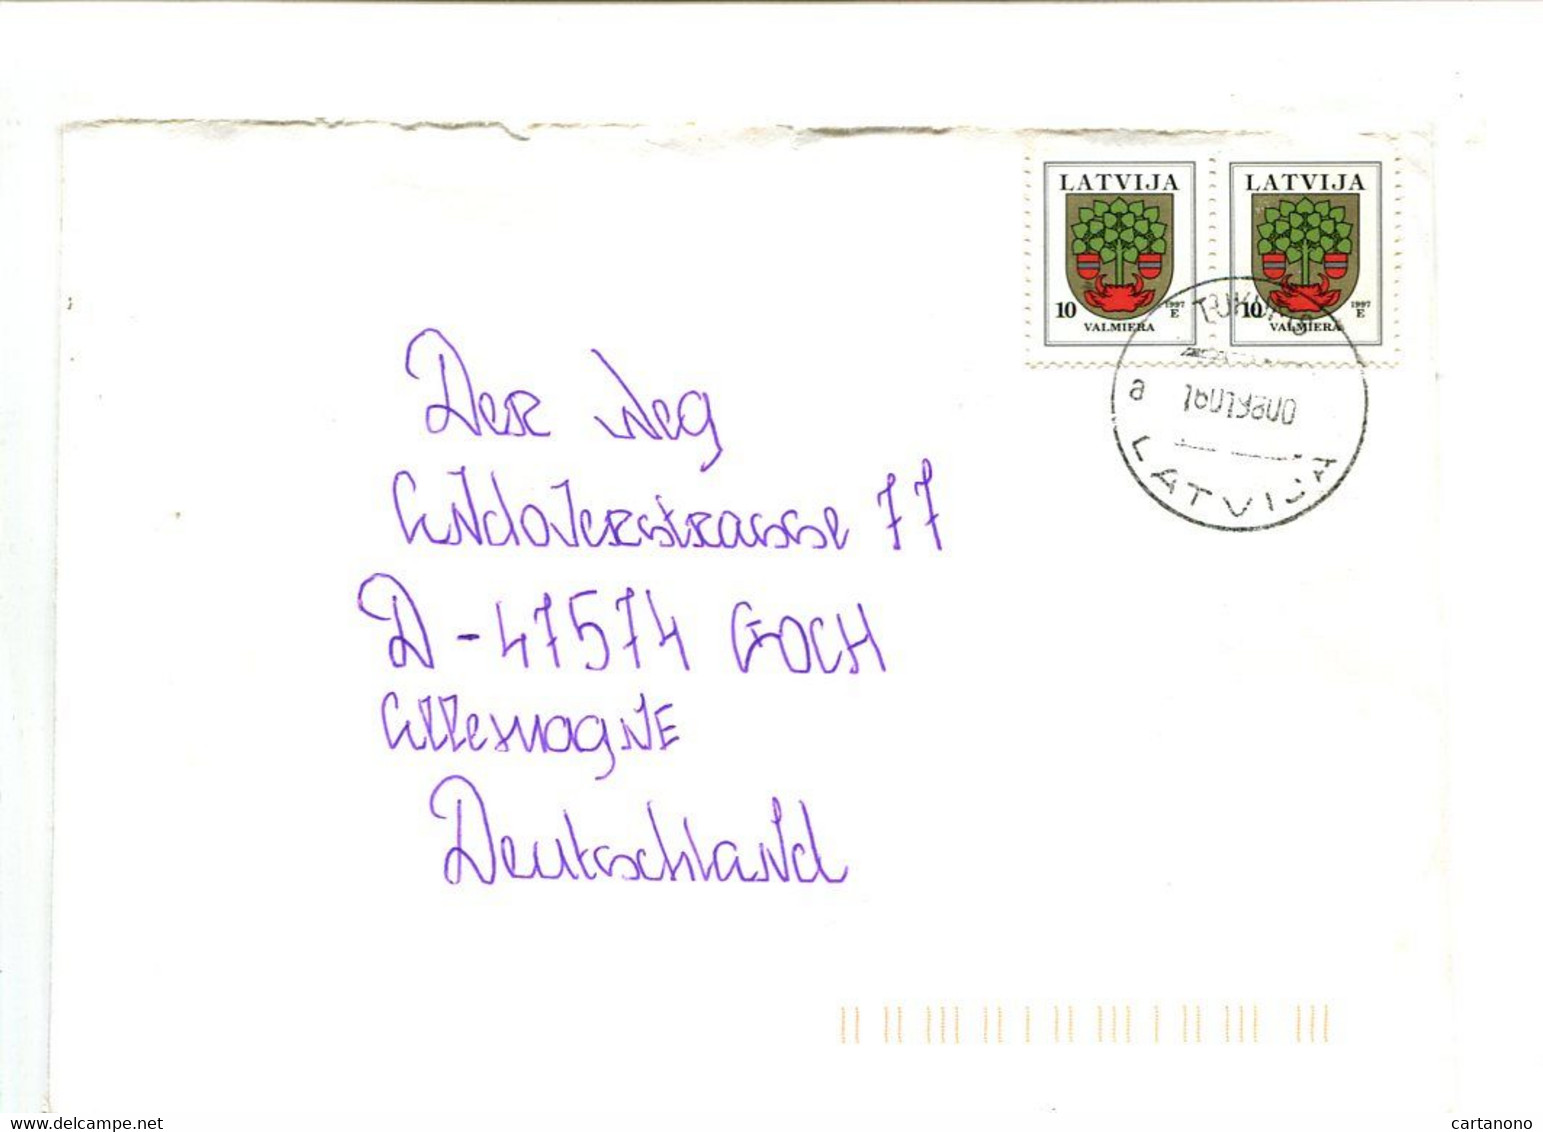 LATVIJA LATVIJA
10 1997 E 10 1997 E
VALMIERA VALMIERA
TUKUMS
a
LATVIJA
Der Weg
Andoverstrasse 77
D-47574 GOCH
AllemagnE
Deutschland
www.delcampe.net
cartanono